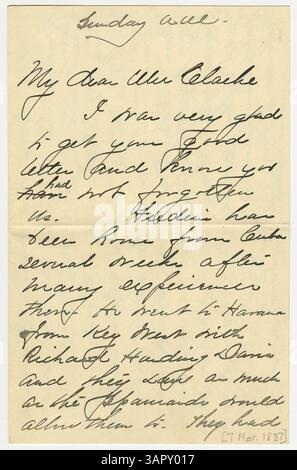 Sunday A.M.
My dear Mr Clarke
I was very glad
to get your good
letter and know you
had
have not forgotten
us. Haddin has
been home from Cuba
several weeks after
many experiences
there. He went to Havana
from Key West with
Richard Harding Davis
and they saw as much
as the Spaniards would
allow them to. They had
[7 Mar. 1897]
alamy
Image ID: 3APY017
www.alamy.com